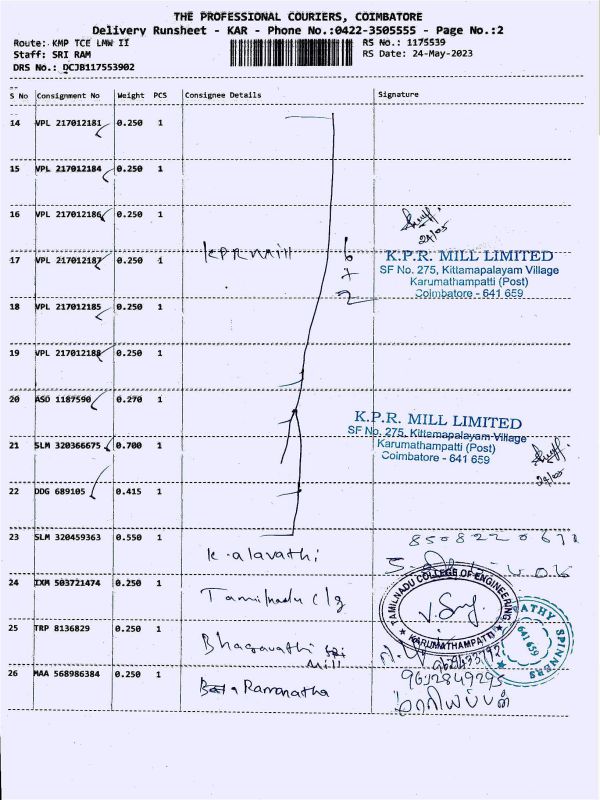 THE PROFESSIONAL COURIERS, COIMBATORE
Delivery Runsheet - KAR - Phone No.:0422-3505555 - Page No.:2
Route: KMP TCE LMW II
RS No.: 1175539
Staff: SRI RAM
RS Date: 24-May-2023
DRS No.: DCJB117553902
S No Consignment No Weight PCS Consignee Details Signature
14 VPL 217012181 0.250 1
15 VPL 217012184 0.250 1
16 VPL 217012186 0.250 1
17 VPL 217012187 0.250 1 KPR Mill
672
K.P.R. MILL LIMITED
SF No. 275, Kittamapalayam Village
Karumathampatti (Post)
Coimbatore - 641 659
18 VPL 217012185 0.250 1
19 VPL 217012188 0.250 1
20 ASO 1187590 0.270 1
K.P.R. MILL LIMITED
SF No. 275, Kittamapalayam Village
Karumathampatti (Post)
Coimbatore - 641 659
21 SLM 320366675 0.700 1
22 DDG 689105 0.415 1
23 SLM 320459363 0.550 1 K. alavathi
24 IXM 503721474 0.250 1 Tamilnadu clg
TAMILNADU COLLEGE OF ENGINEERING
KARUMATHAMPATTI
25 TRP 8136829 0.250 1 Bhagavathi Sri Mill
ATHY SPINNERS
641 659
26 MAA 568986384 0.250 1 Ramanatha
9612849295
மாரியப்பன்